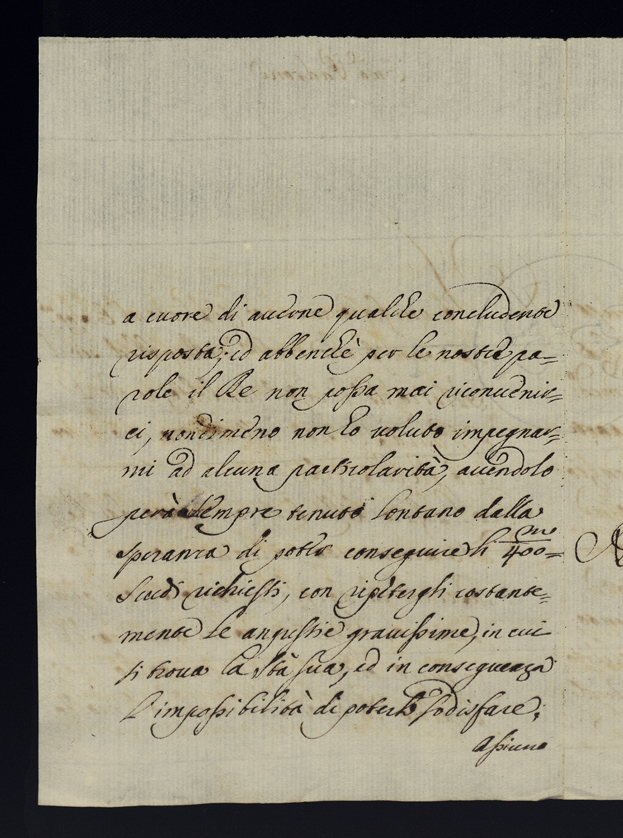 a cuore di averne qualche concludente
risposta; ed abbenchè per le nostre pa=
role il Re non possa mai riconvenir=
ci, nondimeno non ho voluto impegnar=
mi ad alcuna particolarità, avendolo
però sempre tenuto lontano dalla
speranza di poter conseguire li 400=m
Scudi richiesti, con ripetergli costante=
mente le angustie gravissime, in cui
si trova la Stà sua, ed in conseguenza
l'impossibilità di poterle sodisfare;